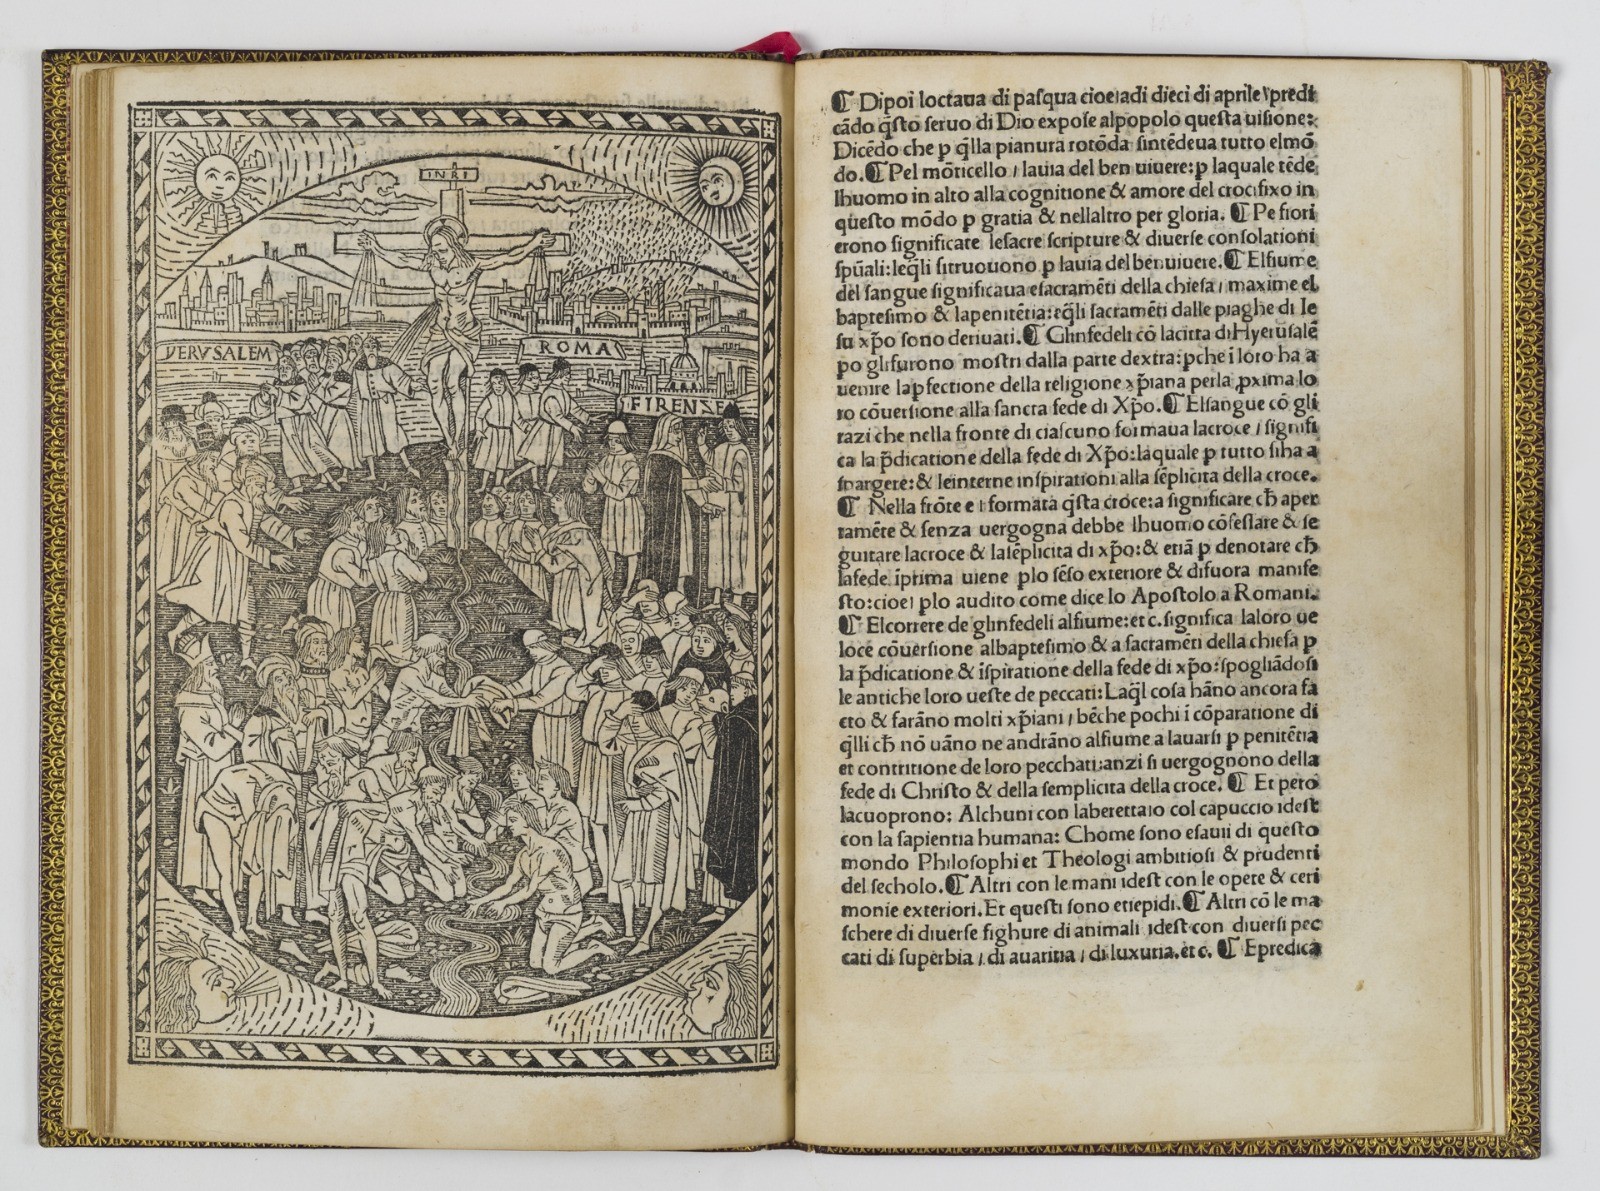 INRI
IERVSALEM
ROMA
FIRENZE
¶ Dipoi loctaua di pasqua cioe adi dieci di aprile predi
cādo q̄sto seruo di Dio expose alpopolo questa uisione:
Dicēdo che p q̄lla pianura rotōda sintēdeua tutto elmō
do. ¶ Pel mōticello / lauia del ben uiuere: p laquale tēde
lhuomo in alto alla cognitione & amore del crocifixo in
questo mōdo p gratia & nellaltro per gloria. ¶ Pe fiori
erono significate lesacre scripture & diuerse consolationi
spūali: leq̄li sitruouono p lauia del benuiuere. ¶ Elfiume
del sangue significaua esacramēti della chiesa / maxime el
baptesimo & lapenitētia: eq̄li sacramēti dalle piaghe di Ie
su xp̄o sono deriuati. ¶ Glinfedeli cō lacitta di Hyerusalē
po glifurono mostri dalla parte dextra: pche i loro ha a
uenire lapfectione della religione xp̄iana perla pxima lo
ro cōuersione alla sancta fede di Xp̄o. ¶ Elsangue cō gli
razi che nella fronte di ciascuno formaua lacroce / signifi
ca la p̄dicatione della fede di Xp̄o: laquale p tutto siha a
spargere: & leinterne inspirationi alla sēplicita della croce.
¶ Nella frōte e formata q̄sta croce: a significare ch̄ aper
tamēte & senza uergogna debbe lhuomo cōfessare & se
guitare lacroce & lasēplicita di xp̄o: & etiā p denotare ch̄
lafede īprima uiene plo sēso exteriore & difuora manife
sto: cioe plo audito come dice lo Apostolo a Romani.
¶ Elcorrere de glinfedeli alfiume: et c. significa laloro ue
loce cōuersione albaptesimo & a sacramēti della chiesa p
la p̄dicatione & īspiratione della fede di xp̄o: spogliādosi
le antiche loro ueste de peccati: Laq̄l cosa hāno ancora fa
cto & farāno molti xp̄iani / bēche pochi ī cōparatione di
q̄lli ch̄ nō uāno ne andrāno alfiume a lauarsi p penitētia
et contritione de loro pecchati: anzi si uergognono della
fede di Christo & della semplicita della croce. ¶ Et pero
lacuoprono: Alchuni con laberetta o col capuccio idest
con la sapientia humana: Chome sono esauii di questo
mondo Philosophi et Theologi ambitiosi & prudenti
del secholo. ¶ Altri con le mani idest con le opere & ceri
monie exteriori. Et questi sono etiepidi. ¶ Altri cō le ma
schere di diuerse fighure di animali idest con diuersi pec
cati di superbia / di auaritia / di luxuria. et c. ¶ Epredica